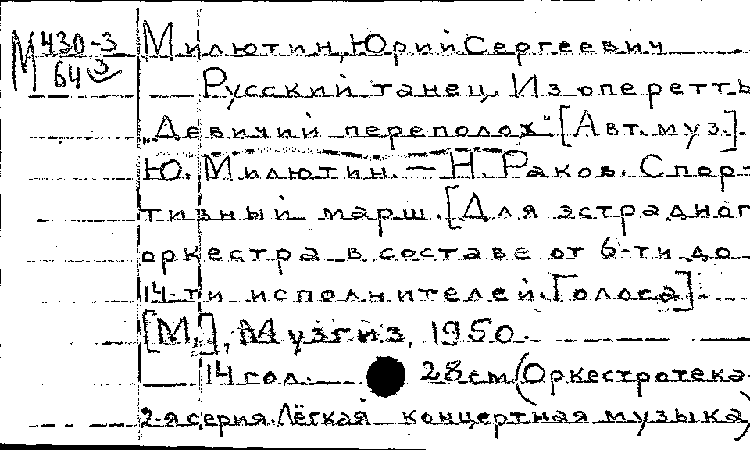 М 430-3 Милютин, Юрий Сергеевич
64 3 Русский танец. Из оперетты
„Девичий переполох" [Авт. муз.].
Ю. Милютин. — Н. Раков. Спор-
тивный марш. [Для эстрадног
оркестра в составе от 6-ти до
14-ти исполнителей. Голоса].
[М.], Музгиз, 1950.
14 гол. 28 см (Оркестротека.
2-я серия. Лёгкая концертная музыка)